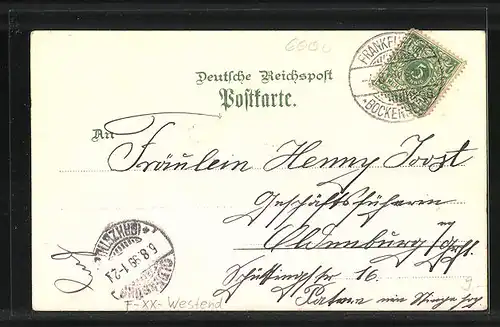 6500
Deutsche Reichspost
Postkarte.
FRANKFURT
BOCKENHEIM
5
An
Fräulein Henny Joost
Geschäftsführerin
Oldenburg i/Grßh.
Schüttingstr 16.
6.8.98 1-2 N
OLDENBURG
F-XX-Westend
9.